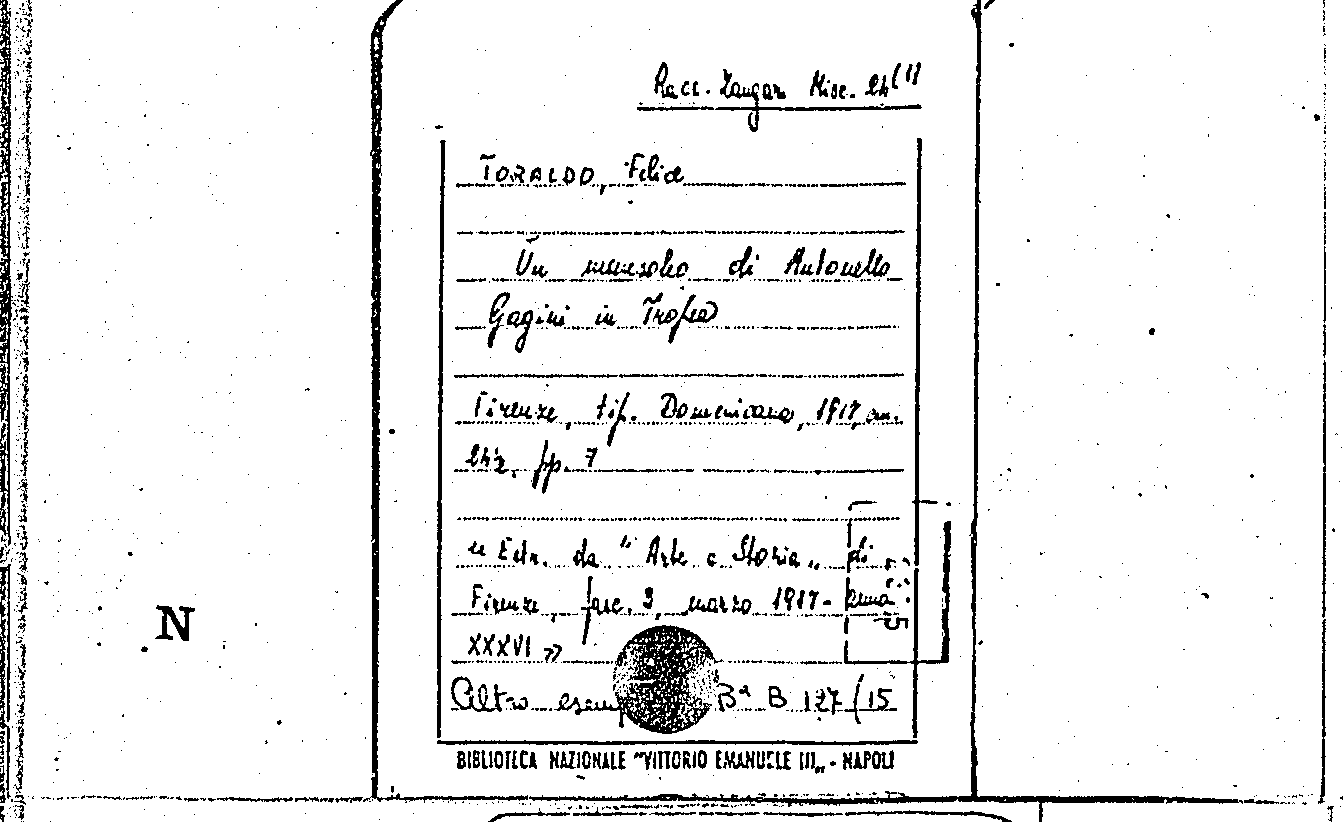 Racc. Zangari Misc. 24(1)
TORALDO, Felice
Un mausoleo di Antonello
Gagini in Tropea
Firenze, tip. Domenicana, 1917, cm.
24½. pp. 7
« Estr. da "Arte e Storia„ di
Firenze, fasc. 3, marzo 1917 - anno
XXXVI »
Altro B.ª B 127/15
BIBLIOTECA NAZIONALE "VITTORIO EMANUELE III„ - NAPOLI
N